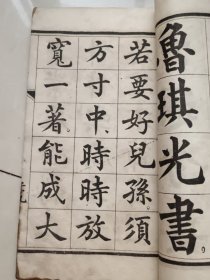 魯琪光書
若要好兒孫須
方寸中時時放
寬一著能成大